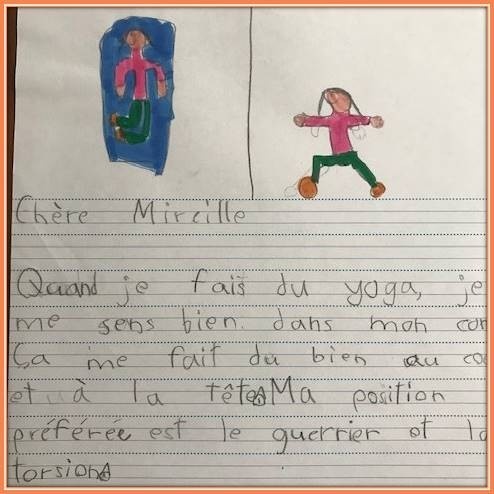 Chère Mireille
Quand je fais du yoga, je
me sens bien. dans mon cor
Ça me fait du bien au co
et à la tête. Ma position
préférée est le guerrier et la
torsion